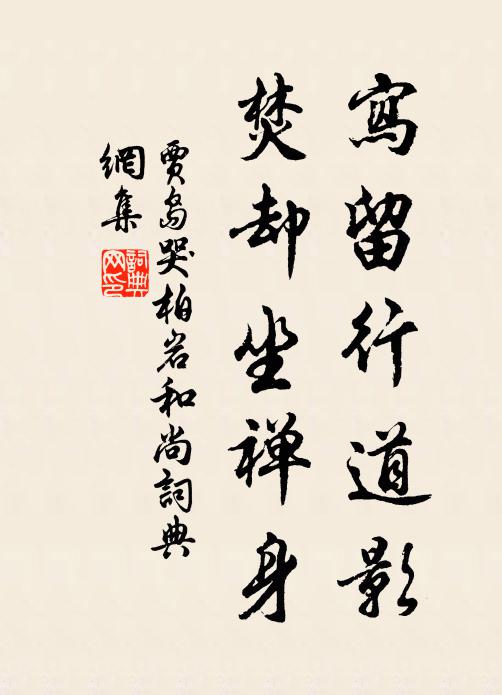 寫留行道影
焚却坐禅身
賈島哭柏岩和尚詞典
網集
詞典
网印